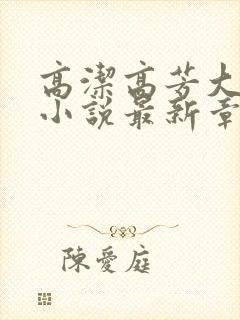 高潔高芳大
小說最新章
陳愛庭